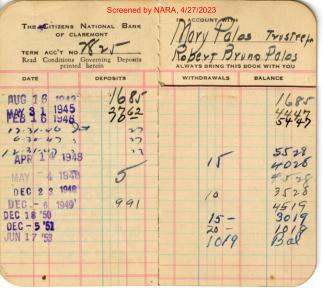 Screened by NARA, 4/27/2023
THE CITIZENS NATIONAL BANK
OF CLAREMONT
TERM ACC'T NO. 7825
Read Conditions Governing Deposits
printed herein
IN ACCOUNT WITH
Mary Palos Trustee for
Robert Bruno Palos
ALWAYS BRING THIS BOOK WITH YOU
DATE DEPOSITS WITHDRAWALS BALANCE
AUG 16 1685 1685
MAY 31 1945 3762 4447
FEB 16 1946 5447
12-31-46 27
27
12-31-47 27 5528
APR 14 1948 15 4028
MAY 4 1948 5 4528
DEC 22 1948 10 3528
DEC -6 1949 991 4519
DEC 18 '50 15- 3019
DEC -5 '51 20-
JUN 17 '53 1019 Bal